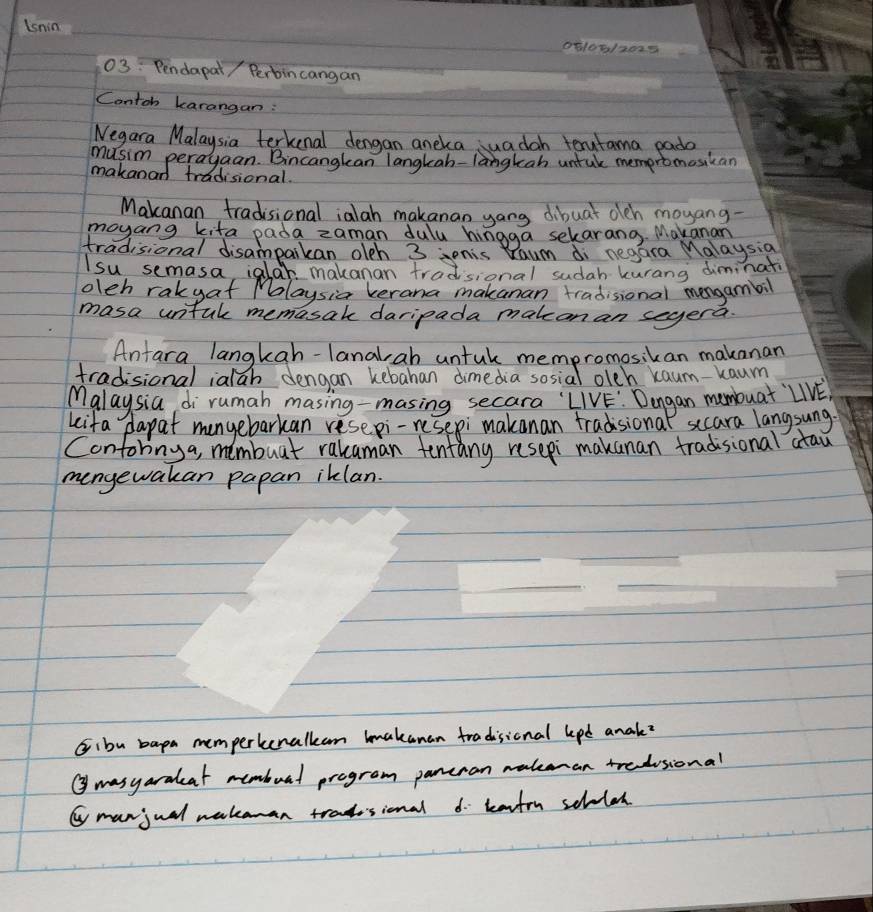 Isnin
05/05/2025
03: Pendapat/Perbincangan
Contoh karangan:
Negara Malaysia terkenal dengan aneka juadah terutama pada
musim perayaan. Bincangkan langkah-langkah untuk mempromosikan
makanan tradisional.
Makanan tradisional ialah makanan yang dibuat oleh moyang-
moyang kita pada zaman dulu hingga sekarang. Makanan
tradisional disampaikan oleh 3 jenis kaum di negara Malaysia
Isu semasa ialah makanan tradisional sudah kurang diminati
oleh rakyat Malaysia kerana makanan tradisional mengambil
masa untuk memasak daripada makanan segera.
Antara langkah-langkah untuk mempromosikan makanan
tradisional ialah dengan kebahan dimedia sosial oleh kaum-kaum
Malaysia di rumah masing-masing secara 'LIVE'. Dengan membuat 'LIVE',
kita dapat menyebarkan resepi-resepi makanan tradisional secara langsung.
Contohnya, membuat rakaman tentang resepi makanan tradisional atau
mengewakan papan iklan.
② ibu bapa memperkenalkan makanan tradisional kpd anak²
③ masyarakat membuat program pameran makanan tradisional
④ menjual makanan tradisional di kantin sekolah